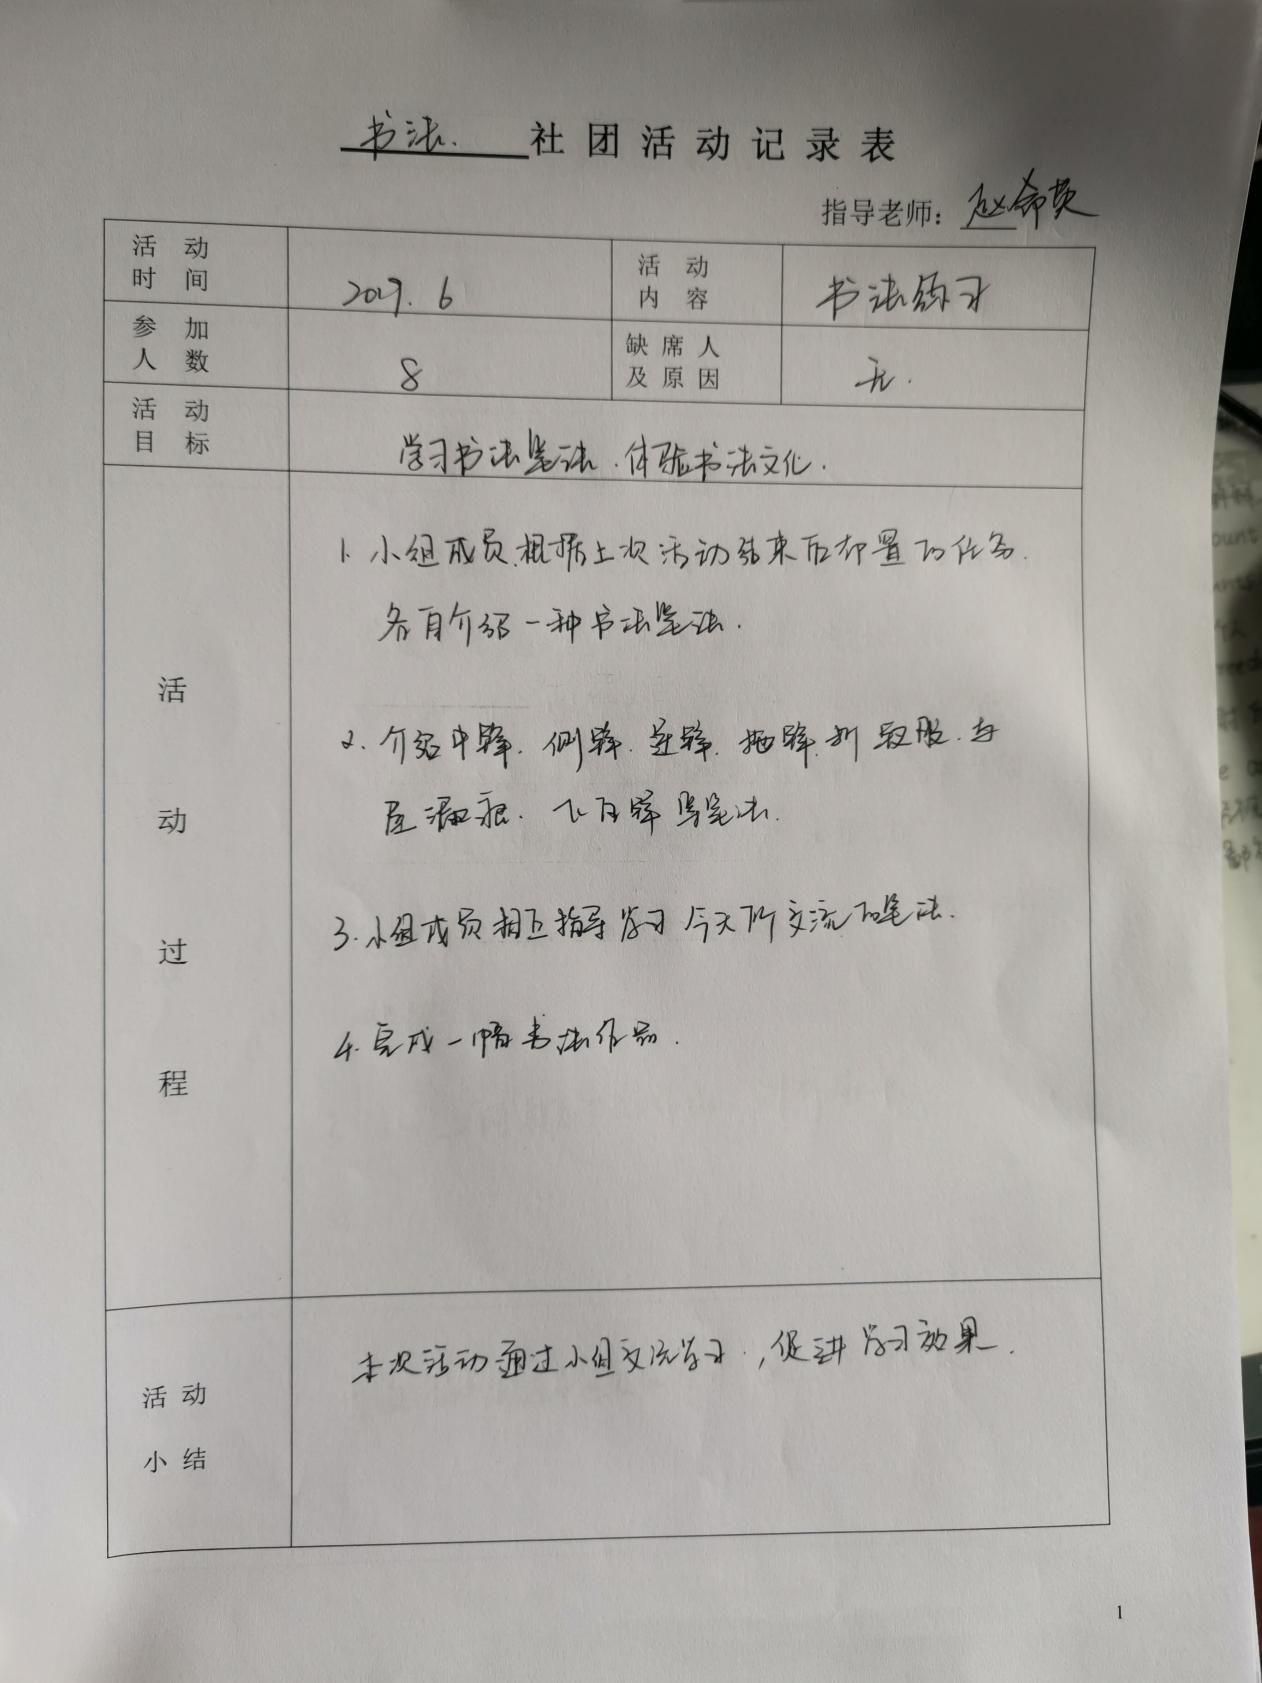 书法 社团活动记录表
指导老师：赵希英
活动时间 2019.6 活动内容 书法练习
参加人数 8 缺席人及原因 无.
活动目标 学习书法笔法.体验书法文化.
活动过程
1. 小组成员.根据上次活动结束后布置的任务.
各自介绍一种书法笔法.
2. 介绍中锋.侧锋.逆锋.拖锋.折钗股.与
屋漏痕.飞白锋等笔法.
3. 小组成员相互指导学习今天所交流的笔法.
4. 完成一幅书法作品.
活动小结
本次活动通过小组交流学习.,促进学习效果.
1